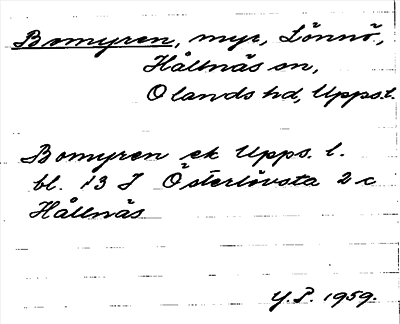 Bomyren, myr, Lönnö,
Hållnäs sn,
Olands hd, Upps.l.
Bomyren ek Upps. l.
bl. 13 J Österlövsta 2 c
Hållnäs
Y.P. 1959.